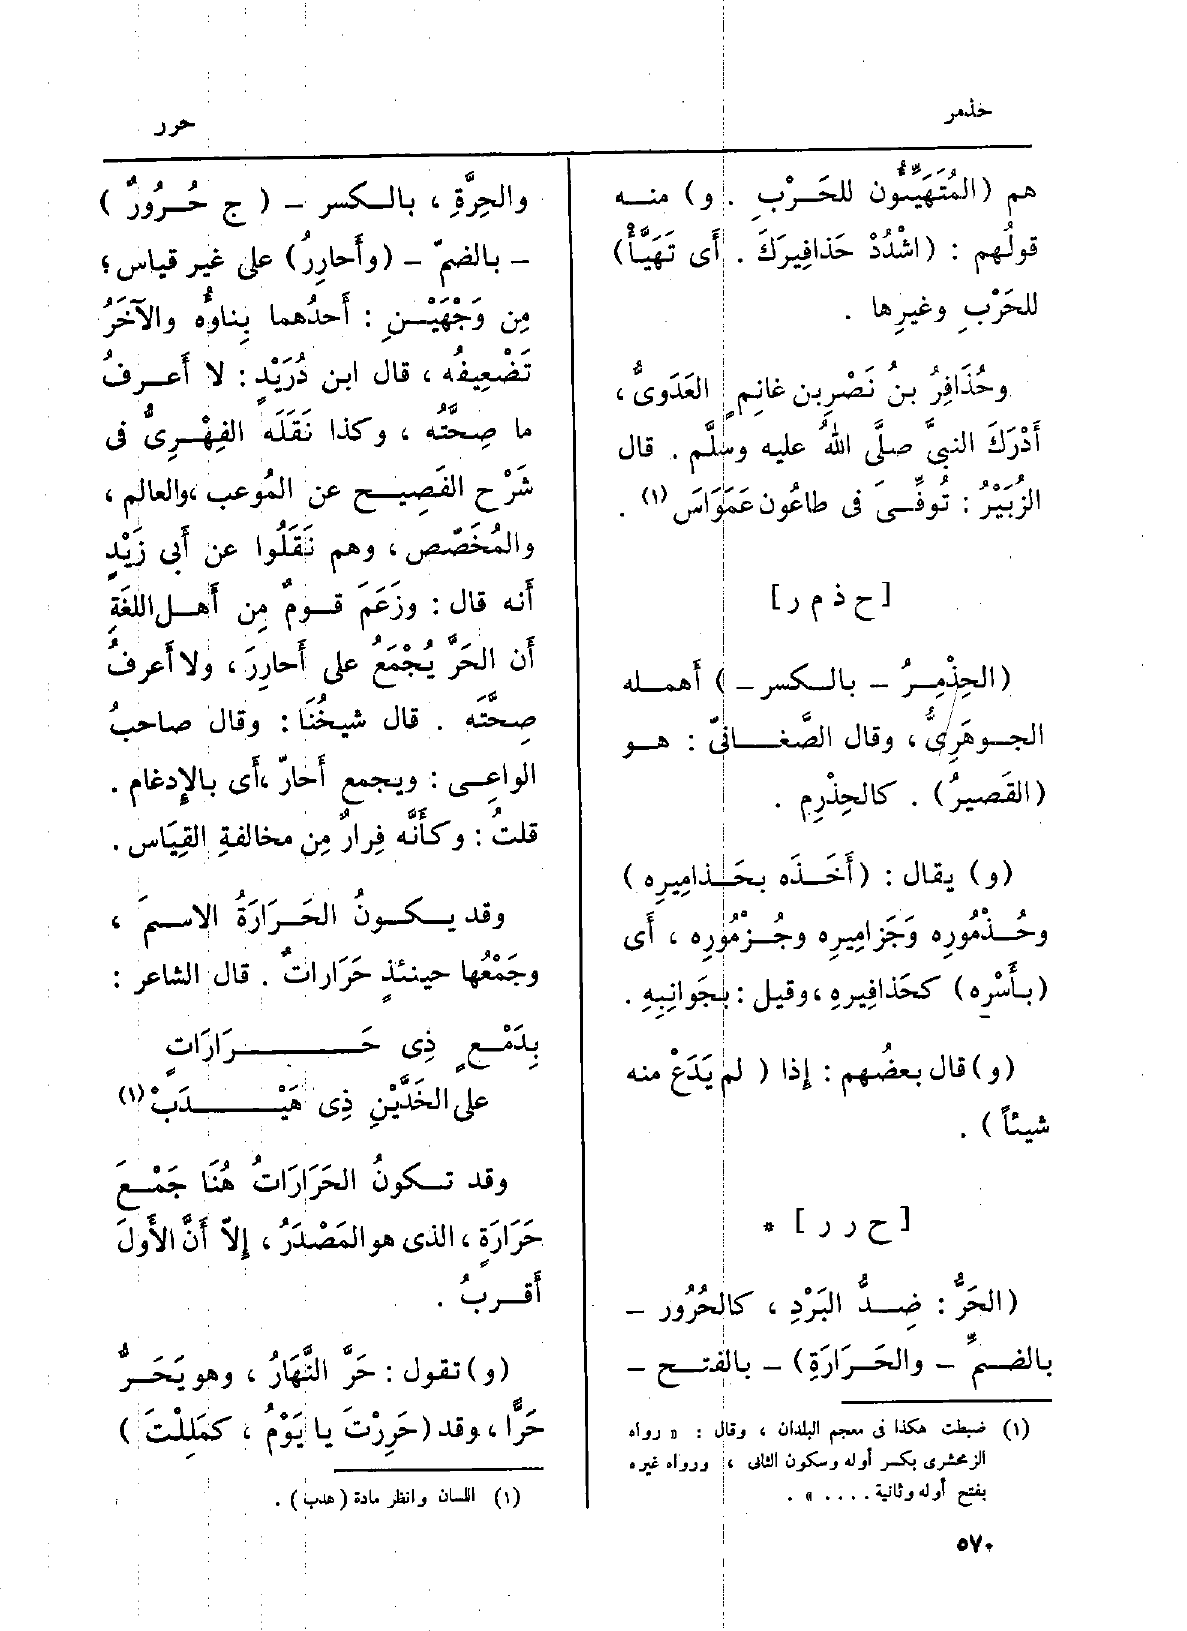 خذمر
حرر
هم (المُتَهَيِّئُون للحَرْبِ . و) منـه
قولُهم : (اشْدُدْ حَذافِيرَكَ . أَى تَهَيَّأْ)
للحَرْبِ وغيرِها .
وحُذَافِرُ بنُ نَصْرِ بن غانِمٍ العَدَوىُّ ،
أَدْرَكَ النبىَّ صلَّى اللهُ عليه وسلَّم . قال
الزُبَيْرُ : تُوفِّـىَ فى طاعُون عَمَوَاسَ (١) .
[ ح ذ م ر ]
(الحِذْمِـرُ – بالـكسر –) أَهمـله
الجـوهَرِىُّ ، وقال الصَّغـانىّ : هـو
(القَصيرُ) . كالحِذْرِم .
(و) يقال : (أَخَـذَه بحَـذامِيرِه )
وحُـذْمُورِه وَجَزامِيرِه وجُـزْمُورِه ، أَى
(بـأَسْرِه) كحَذافِيرِهِ ، وقيل : بجَوانِبِهِ .
(و) قال بعضُهم : إِذا ( لم يَدَعْ منه
شيئاً ) .
[ ح ر ر ] *
(الحَرُّ : ضِـدُّ البَرْدِ ، كالحُرُور –
بالضـمِّ – والحَـرَارَةِ) – بالفتـح –
(١) ضبطت هكذا فى معجم البلدان ، وقال : « رواه
الزمخشرى بكسر أوله وسكون الثانى ، ورواه غيره
بفتح أوله وثانية . . . . » .
والحِرَّةِ ، بالـكسر – ( ج حُـرُورٌ )
– بالضمّ – (وأَحارِرُ) على غير قياس ؛
مِن وَجْهَيْـنِ : أَحدُهما بِناوُه والآخَرُ
تَضْعِيفُه ، قال ابن دُرَيْدٍ : لا أَعـرفُ
ما صِحَّتُه ، وكذا نَقَلَه الفِهْرِىُّ فى
شَرْح الفَصِيـح عن المُوعب ، والعالم ،
والمُخَصّص ، وهم نَقَلُوا عن أَبى زَيْدٍ
أَنه قال : وزَعَمَ قـومٌ مِن أَهـل اللغَةِ
أَن الحَرَّ يُجْمَعُ على أَحارِرَ ، ولا أَعرفُ
صِحَّتَه . قال شيخُنَا : وقال صاحبُ
الواعِـى : ويجمع أَحارّ ، أَى بالإِدغام .
قلتُ : وكأَنَّه فِرارٌ مِن مخالفةِ القِيَاس .
وقد يـكـونُ الحَـرَارَةُ الاسمَ ،
وجَمْعُها حينئذٍ حَرَاراتٌ . قال الشاعر :
بِدَمْـعٍ ذِى حَـــرَارَاتٍ
على الخَدَّيْنِ ذِى هَيْـــدَبْ (١)
وقد تـكونُ الحَرَارَاتُ هُنَا جَمْـعَ
حَرَارَةٍ ، الذى هو المَصْدَرُ ، إِلاّ أَنَّ الأَولَ
أَقـربُ .
(و) تقول : حَرَّ النَّهَارُ ، وهو يَحَـرُّ
حَرًّا ، وقد (حَرِرْتَ يا يَوْمُ ، كمَلِلْتَ )
(١) اللسان وانظر مادة ( هدب ) .
٥٧٠